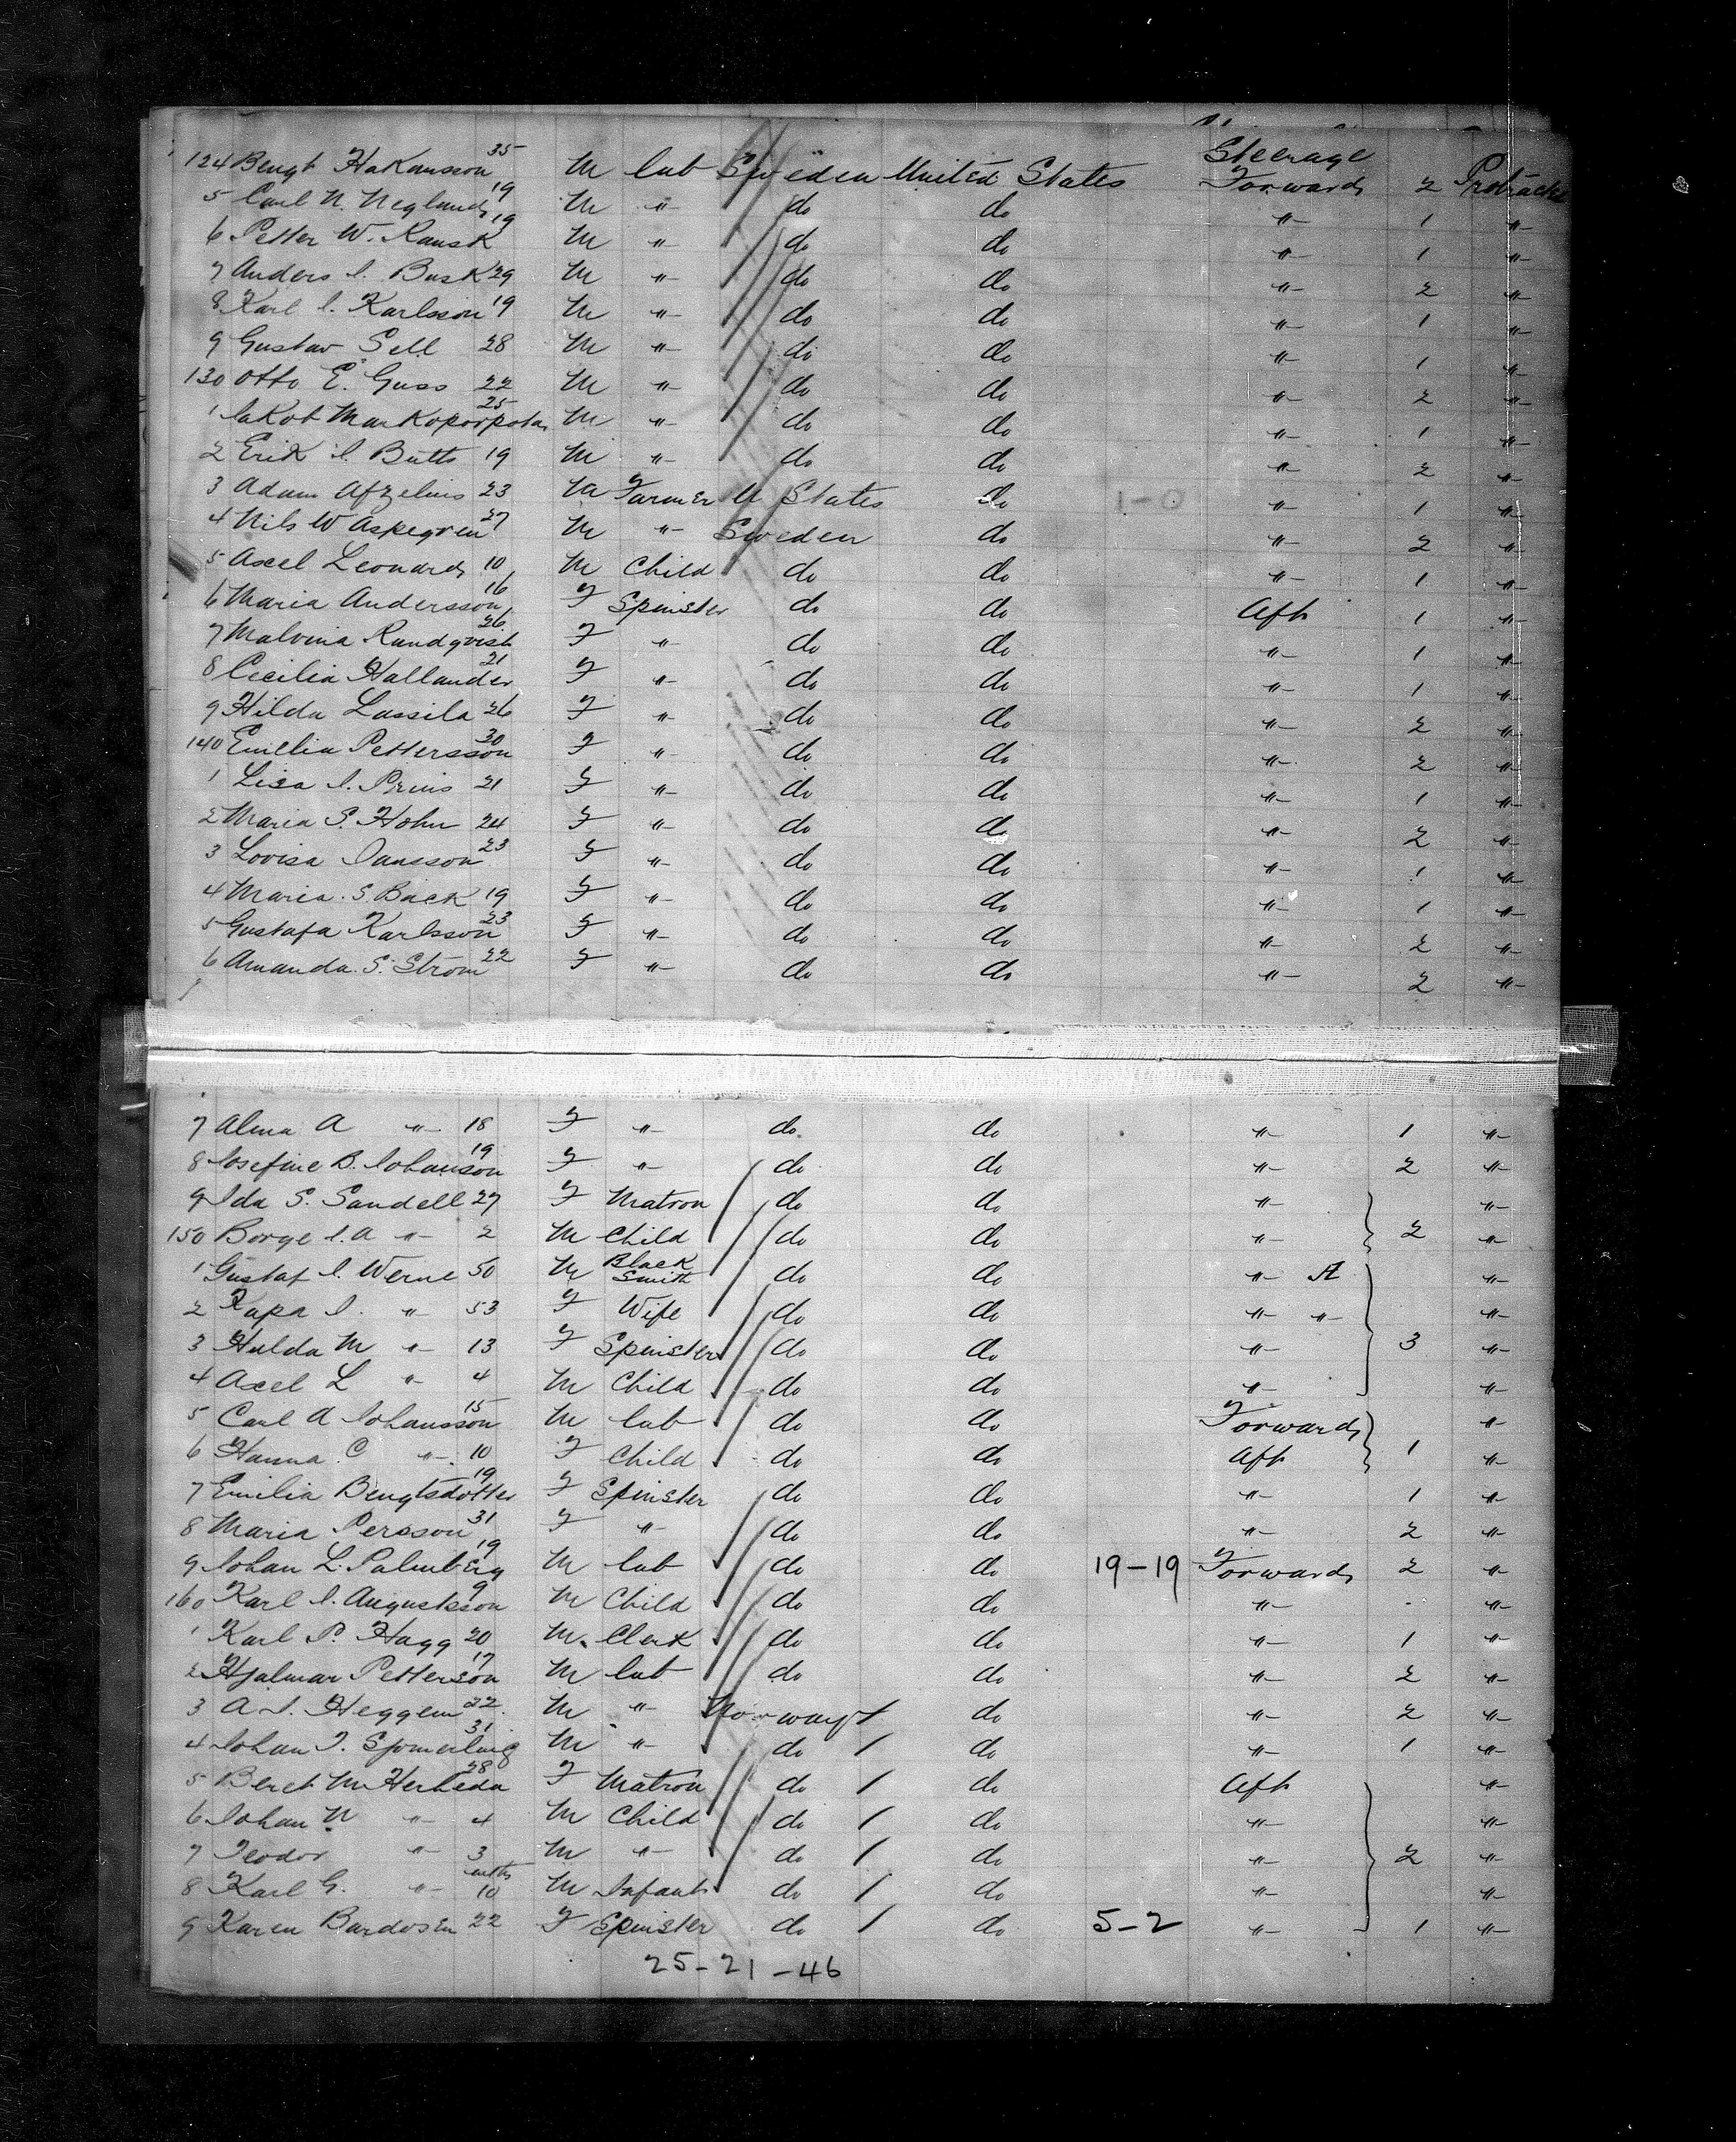 Steerage
124 Bengt Hakansson 35 M Lab Sweden United States Forwards 2 Protracted
5 Carl N. Neglund 19 M " do do " 1 "
6 Petter W. Kausk 19 M " do do " 1 "
7 Anders I. Busk 29 M " do do " 2 "
8 Karl I. Karlsson 19 M " do do " 1 "
9 Gustav Sell 28 M " do do " 1 "
130 Otto E. Guss 22 M " do do " 2 "
1 Iakob 25 M " do do " 1 "
2 Erik I. Butts 19 M " do do " 2 "
3 Adam Afzelius 23 M Farmer U States do 1-0 " 1 "
4 Nils W Aspegren 27 M " Sweden do " 2 "
5 Axel Leonard 10 M Child do do " 1 "
6 Maria Andersson 16 F Spinster do do Aft 1 "
7 Malvina Rundqvist 26 F " do do " 1 "
8 Cecilia Hallander 21 F " do do " 1 "
9 Hilda Lassila 26 F " do do " 2 "
140 Emelia Pettersson 30 F " do do " 2 "
1 Lisa I. Prins 21 F " do do " 1 "
2 Maria S. Hohn 24 F " do do " 2 "
3 Lovisa Jansson 23 F " do do " 1 "
4 Maria. S. Back 19 F " do do " 1 "
5 Gustafa Karlsson 23 F " do do " 2 "
6 Amanda. S. Strom 22 F " do do " 2 "
7 Alma A " 18 F " do do " 1 "
8 Josefine B. Johanson 19 F " do do " 2 "
9 Ida S. Sandell 27 F Matron do do " "
150 Borge I. A " 2 M Child do do " 2 "
1 Gustaf I. Werne 50 M Black Smith do do " A "
2 Kapa I. " 53 F Wife do do " " "
3 Hulda M " 13 F Spinster do do " 3 "
4 Axel L " 4 M Child do do " "
5 Carl A Johansson 15 M Lab do do Forwards "
6 Hanna C " 10 F Child do do Aft 1 "
7 Emilia Bengtsdotter 19 F Spinster do do " 1 "
8 Maria Persson 31 F " do do " 2 "
9 Johan L. Palmberg 19 M Lab do do 19-19 Forwards 2 "
160 Karl I. Augustsson 9 M Child do do " - "
1 Karl P. Hagg 20 M. Clerk do do " 1 "
2 Hjalmar Petterson 17 M Lab do do " 2 "
3 A. I. Heggem 22 M " Norway 1 do " 2 "
4 Johan I. Spmerling 31 M " do 1 do " 1 "
5 Beret M. Herheda 28 F Matron do 1 do Aft "
6 Johan N " 4 M Child do 1 do " "
7 Teodor " 3 M " do 1 do " 2 "
8 Karl G. " mths 10 M Infant do 1 do " "
9 Karen Bardosen 22 F Spinster do 1 do 5-2 " 1 "
25-21-46